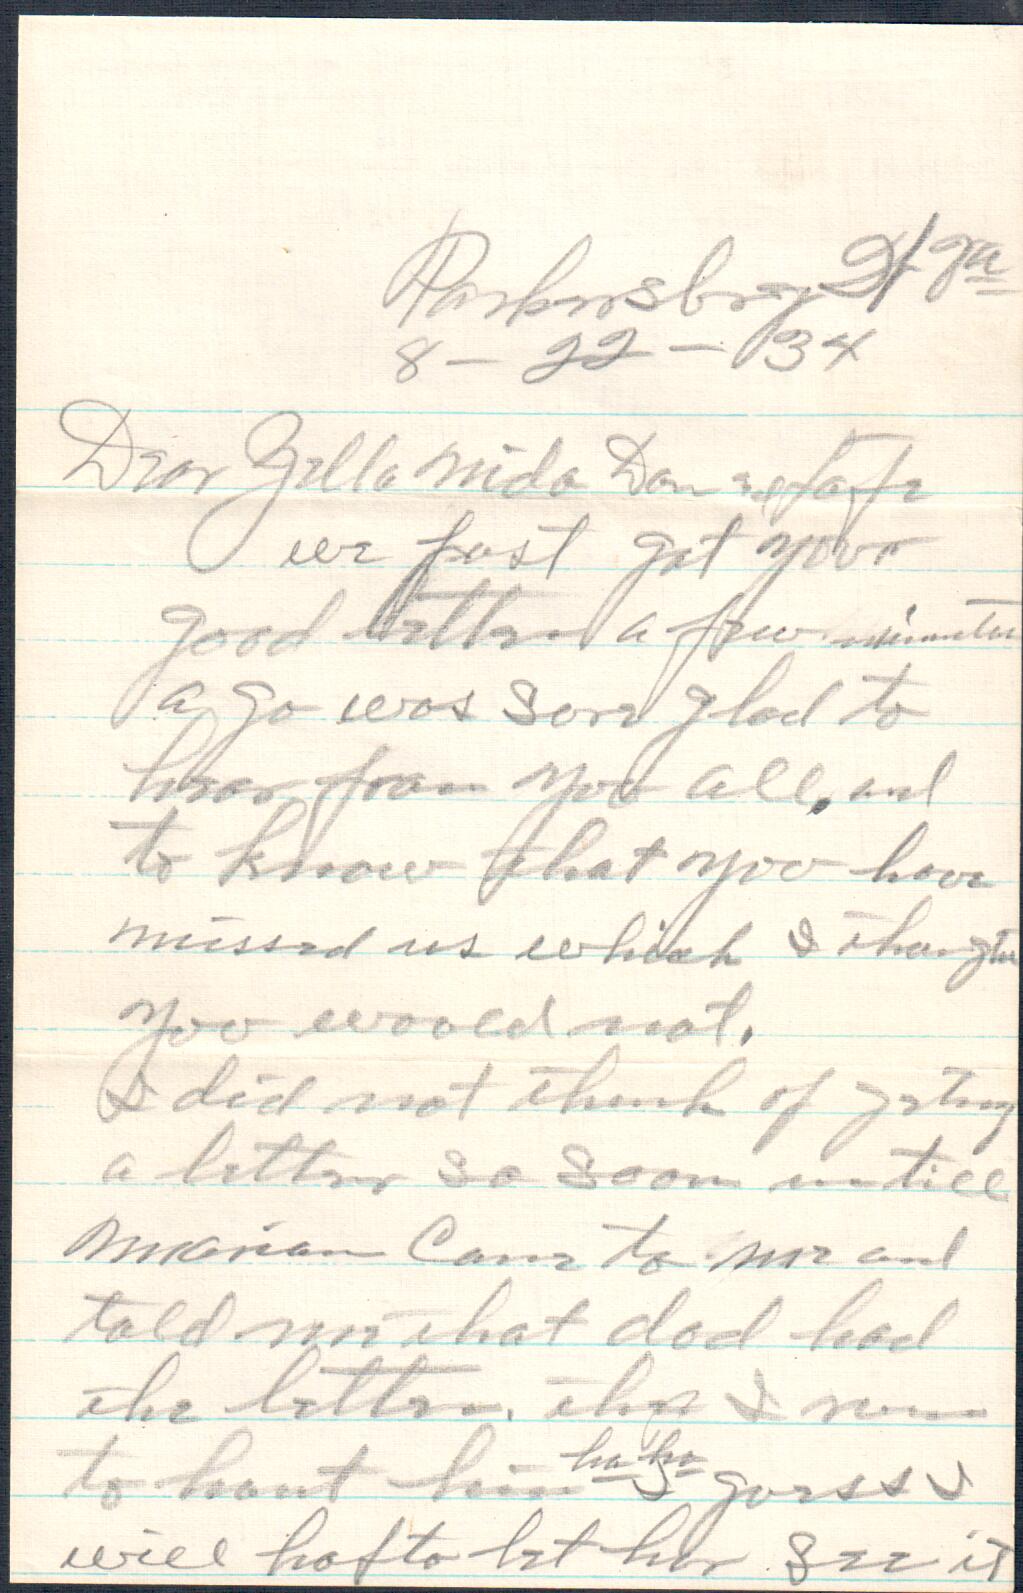 Parkersburg W Va
8 - 22 - 34
Dear Zella Nida Don
we just got your
good letter a few minutes
a go was sore glad to
hear from you all, and
to know that you have
missed us which I thought
you woueld not.
I did not think of geting
a letter so soon untill
Marian Came to me and
told me that dad had
the letter. then I run
to hunt him ha ha I guess I
will hafto let her see it